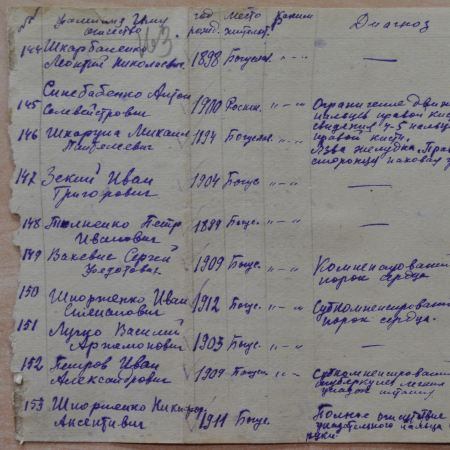 № Фамилия Имя отчество год рожд. Место жительст. Диагноз
163
144 Шкарбаненко
Леонтий Николаевич 1898 Богуслав. " — " —
145 Синебабенко Антон
Селвейстрович 1900 " — " Ограничение движ
пальцев правой кис
сведения 4-5 пальц
146 Шкартуна Михаил 1894 Богуслав. " — " правой кисти.
Язва желудка. Пра
сторонняя паховая
147 Зский Иван
Григорович 1904 Богус. " — " —
148 Петр
Иванович 1899 Богус. " — " —
149 Вакевич Сергей
Федотович 1909 Богус. " — " Компенсирований
порок сердца
150 Шпорженко Иван
Степанович 1912 Богус. " — " Субкомпенсировани
порок сердца.
151 Луцко Василий
Артамонович 1903 Богус. " — " —
152 Петров Иван
Александрович 1909 Богус. " — " Субкомпенсировани
туберкулез легких
упадок питания
153 Никифор
Аксентиевич 1911 Богус. Полное отсутствие
указательного пальца
руки